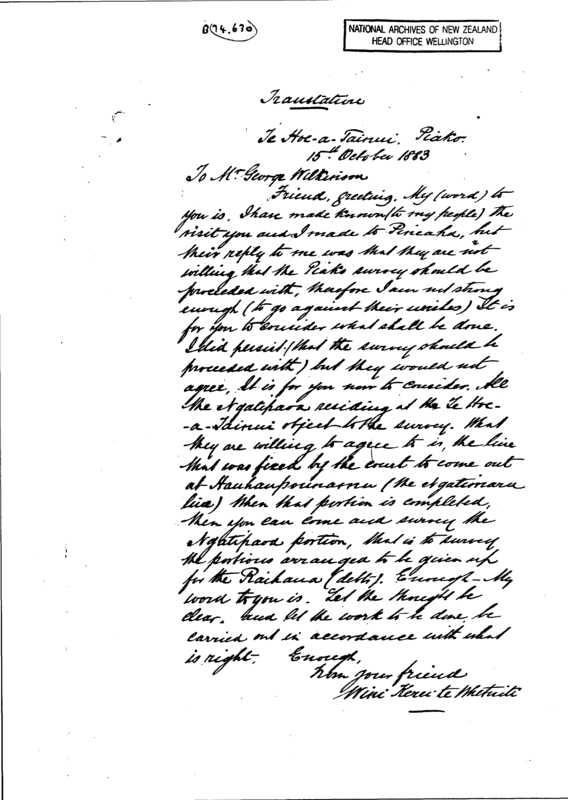 B(74.670)
NATIONAL ARCHIVES OF NEW ZEALAND
HEAD OFFICE WELLINGTON
Translation
Te Hoe-a-Tainui, Piako.
15th October 1883
To Mr George Wilkinson
Friend, greeting. My (word) to
you is. I have made known (to my people) the
visit you and I made to Pineaha, but
their reply to me was that they are not
willing that the Piako survey should be
proceeded with, therefore I am not strong
enough (to go against their wishes) It is
for you to consider what shall be done.
I did persist (that the survey should be
proceeded with) but they would not
agree. It is for you now to consider. All
the Ngatipaoa residing at the Te Hoe-
-a-Tainui object to the survey. What
they are willing to agree to is, the line
that was fixed by the court to come out
at Hauhaupounamu (the Ngatimaru
line) When that portion is completed,
then you can come and survey the
Ngatipaoa portion, that is to survey
the portions arranged to be given up
for the Raihana (debts). Enough - My
word to you is. Let the thought be
clear. and let the work to be done, be
carried out in accordance with what
is right. Enough,
from your friend
Wini Kerei te Whetuiti